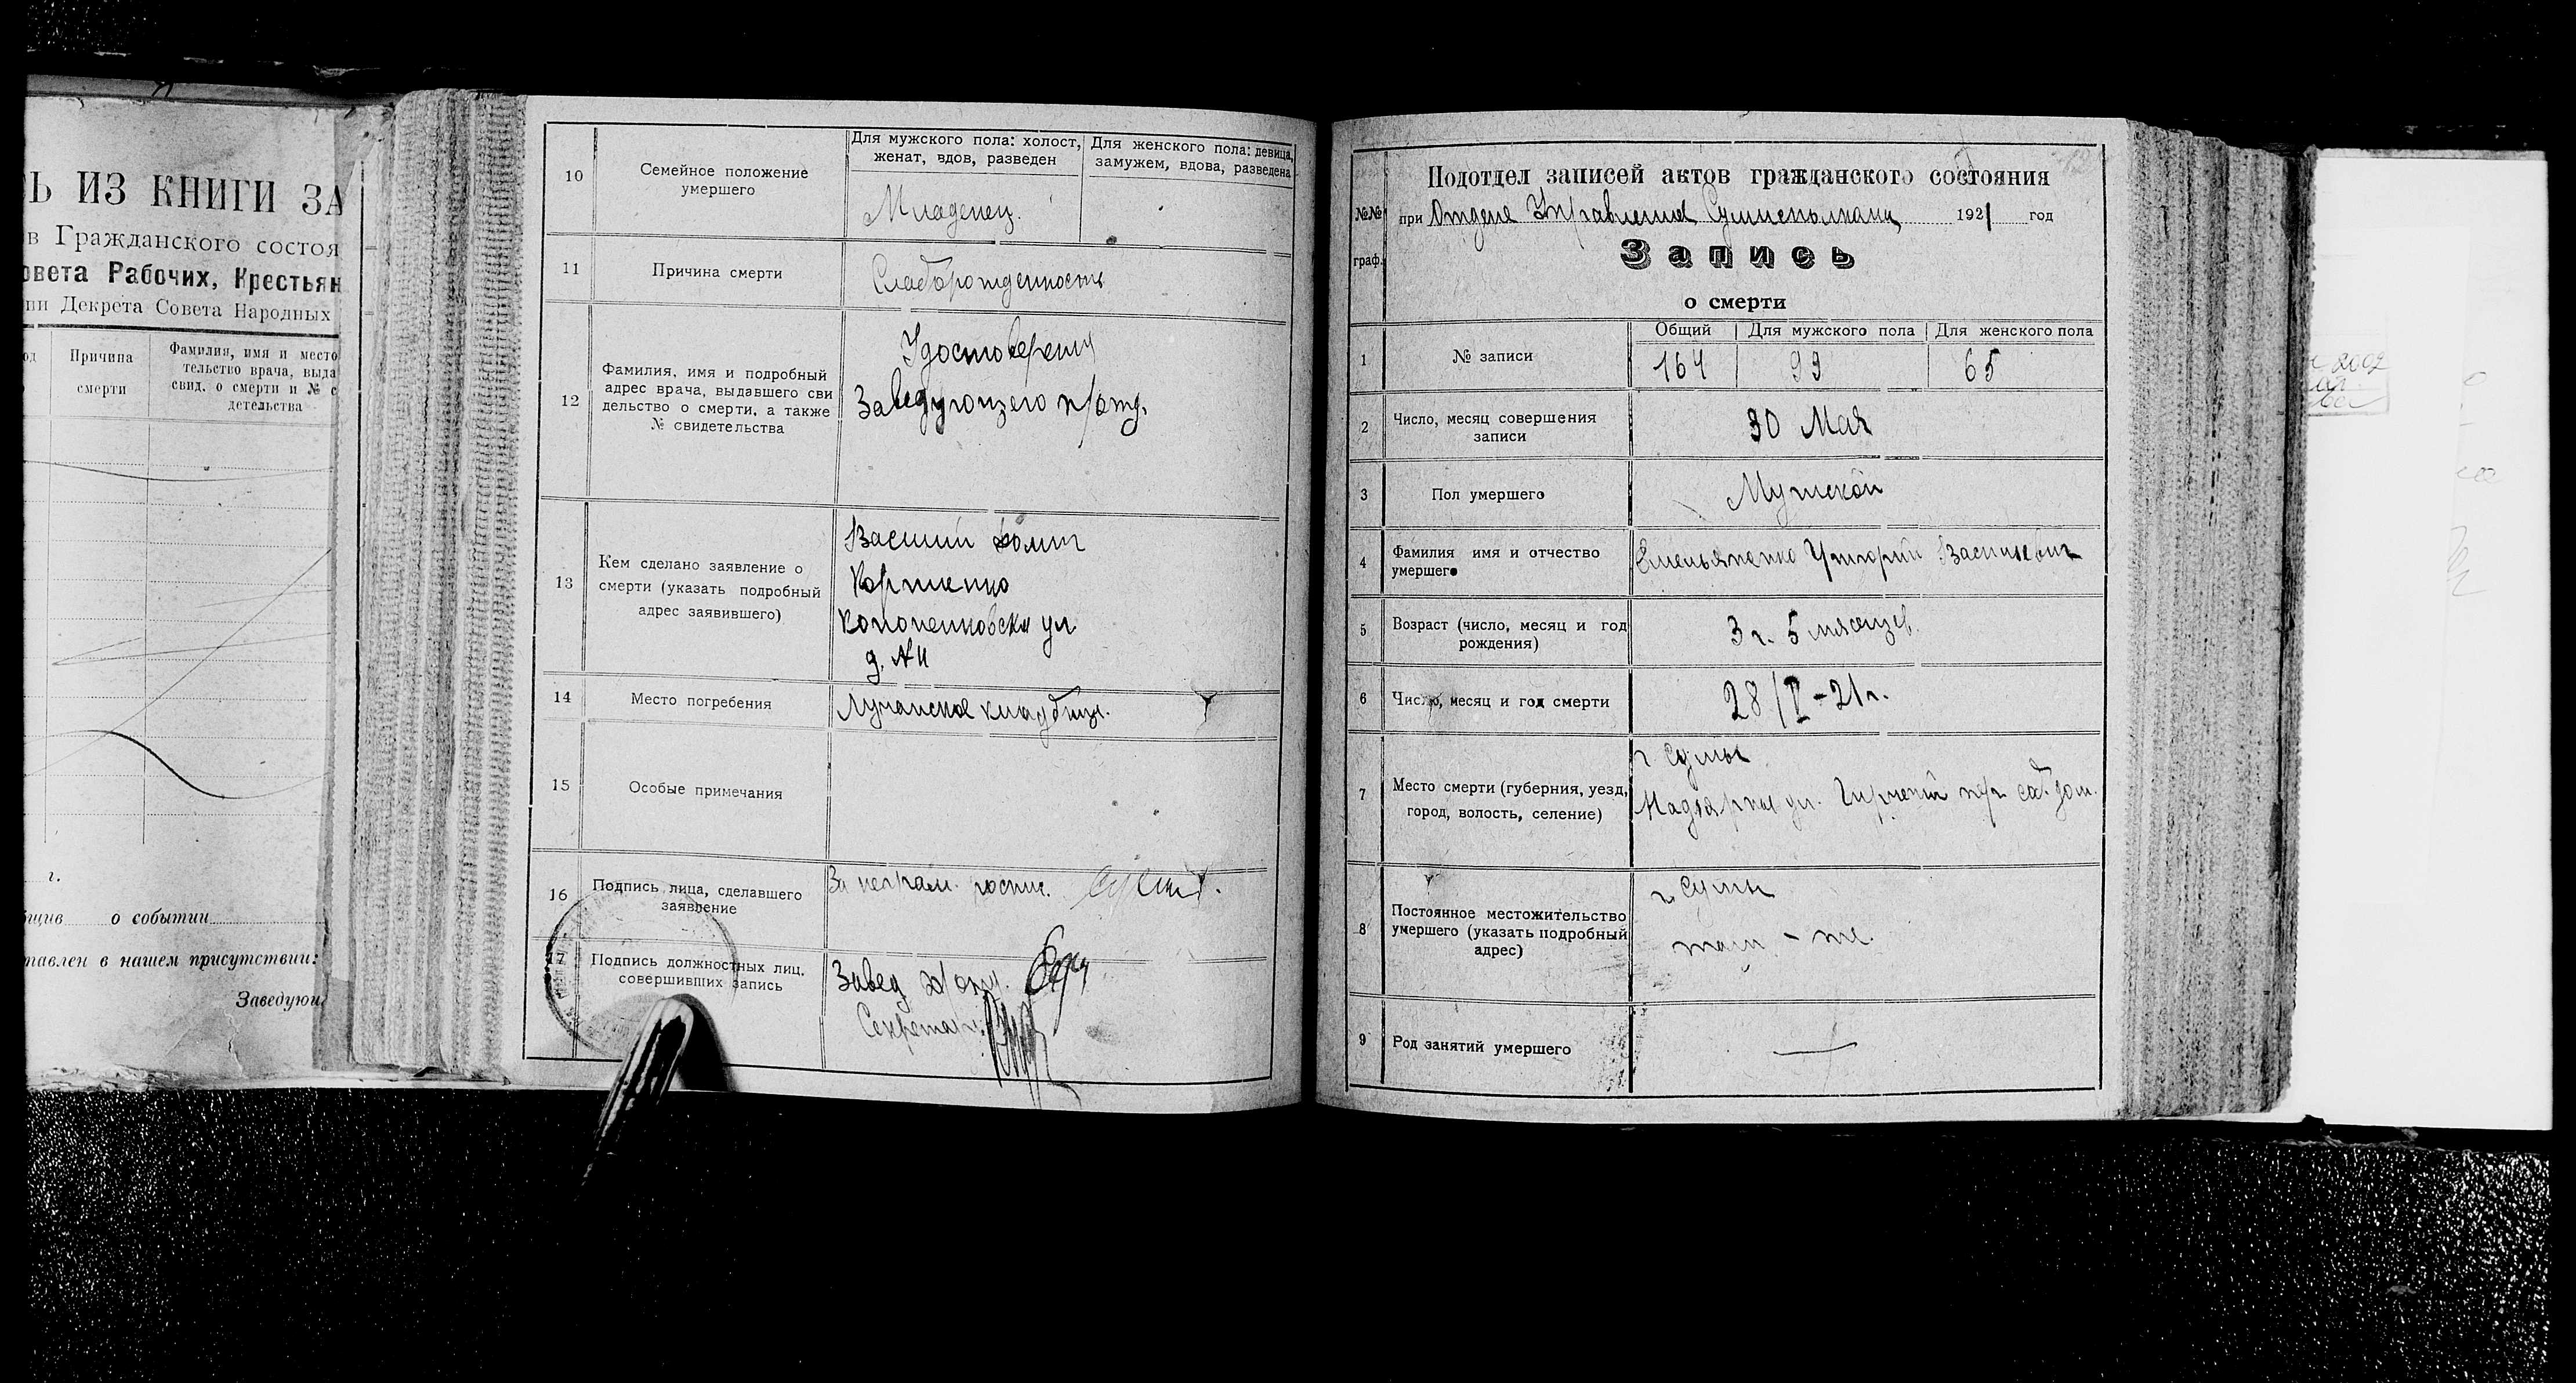 Ь ИЗ КНИГИ ЗА
в Гражданского состоя
овета Рабочих, Крестьян
ии Декрета Совета Народных
од
Причина
смерти
Фамилия, имя и место
тельство врача, выда
свид. о смерти и № с
детельства
г.
бщив о событии
тавлен в нашем присутствии:
Заведующ
10
Семейное положение
умершего
Для мужского пола: холост,
женат, вдов, разведен
Для женского пола: девица,
замужем, вдова, разведена
Младенец.
11
Причина смерти
Слаборожденность
12
Фамилия, имя и подробный
адрес врача, выдавшего сви
дельство о смерти, а также
№ свидетельства
Удостоверения
Заведующего п/отд.
13
Кем сделано заявление о
смерти (указать подробный
адрес заявившего)
Василий Фомич
Корженко
ул
д. №
14
Место погребения
Лучанское кладбище.
15
Особые примечания
16
Подпись лица, сделавшего
заявление
За неграм. роспис.
17
Подпись должностных лиц.
совершивших запись
Завед п/отд.
Секретарь
№№
граф.
Подотдел записей актов гражданского состояния
при Отделе Управления Сумисполкома 1921 год
Запись
о смерти
1
№ записи
Общий
Для мужского пола
Для женского пола
164
99
65
2
Число, месяц совершения
записи
30 Мая
3
Пол умершего
Мужской
4
Фамилия имя и отчество
умершего
Емельяненко Григорий Васильевич
5
Возраст (число, месяц и год
рождения)
3 г. 5 месяцев.
6
Число, месяц и год смерти
28/V-21 г.
7
Место смерти (губерния, уезд,
город, волость, селение)
г Сумы
ул. соб. дом.
8
Постоянное местожительство
умершего (указать подробный
адрес)
г. Сумы
там - же.
9
Род занятий умершего
—